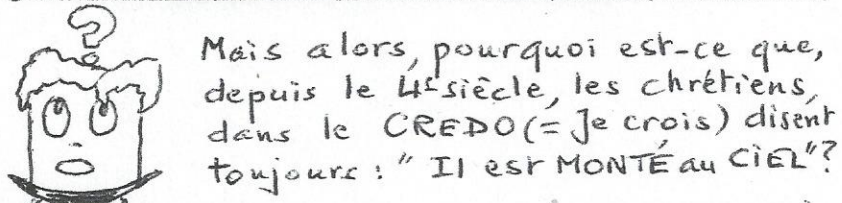 ?
Mais alors, pourquoi est-ce que,
depuis le 4e siècle, les chrétiens,
dans le CREDO (= Je crois) disent
toujours : " Il est MONTÉ au CIEL"?